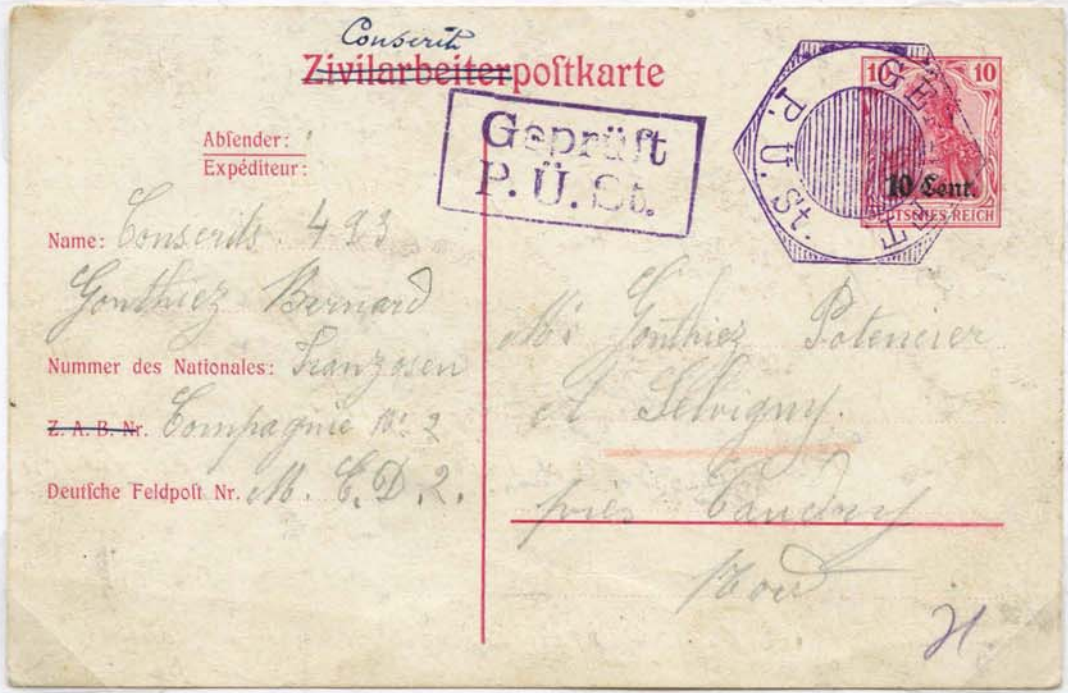 Conscrit
Zivilarbeiterpoſtkarte
Abſender:
Expéditeur:
Geprüft
P. Ü. St.
GEPRÜFT
P. Ü. St.
10 10
10 Cent.
DEUTSCHES REICH
Name: Conscrits. 493
Gonthiez Bernard
Nummer des Nationales: Franzosen
Z. A. B. Nr. Compagnie No 2
Deutſche Feldpoſt Nr. M. E. D. 2.
Mr Gonthiez Potencier
A Selvigny.
près Caudry
Nord